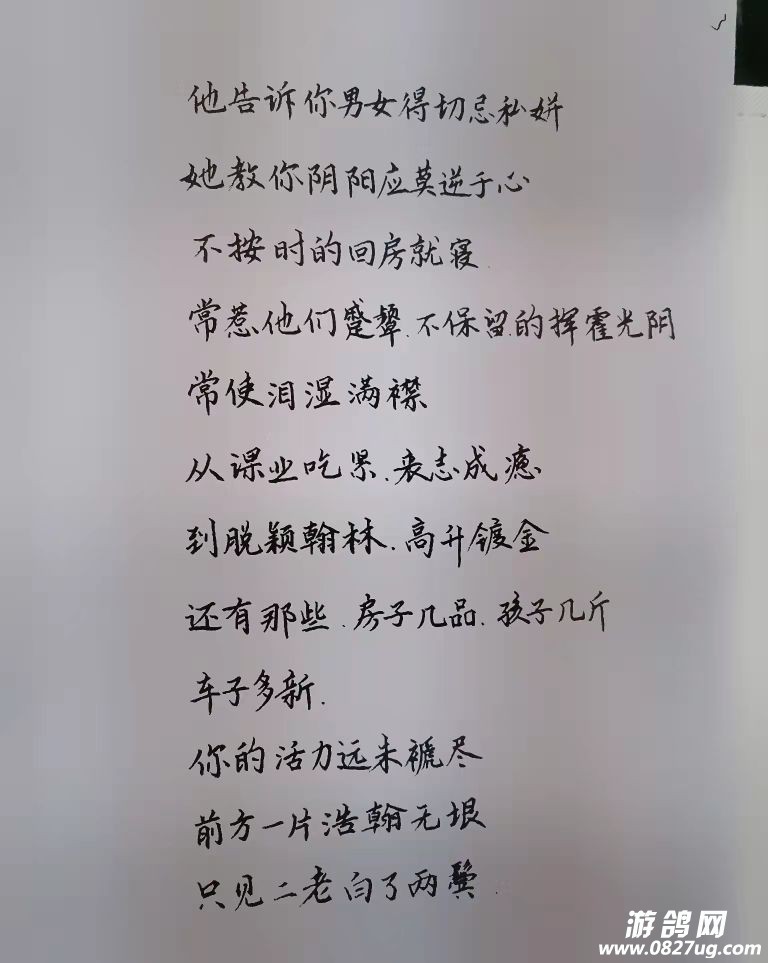 他告诉你男女得切忌私姘
她教你阴阳应莫逆于心
不按时的回房就寝
常惹他们蹙颦.不保留的挥霍光阴
常使泪湿满襟
从课业吃紧.丧志成瘾
到脱颖翰林.高升镀金
还有那些.房子几品.孩子几斤
车子多新.
你的活力远未褫尽
前方一片浩翰无垠
只见二老白了两鬓
游鸽网
www.0827ug.com